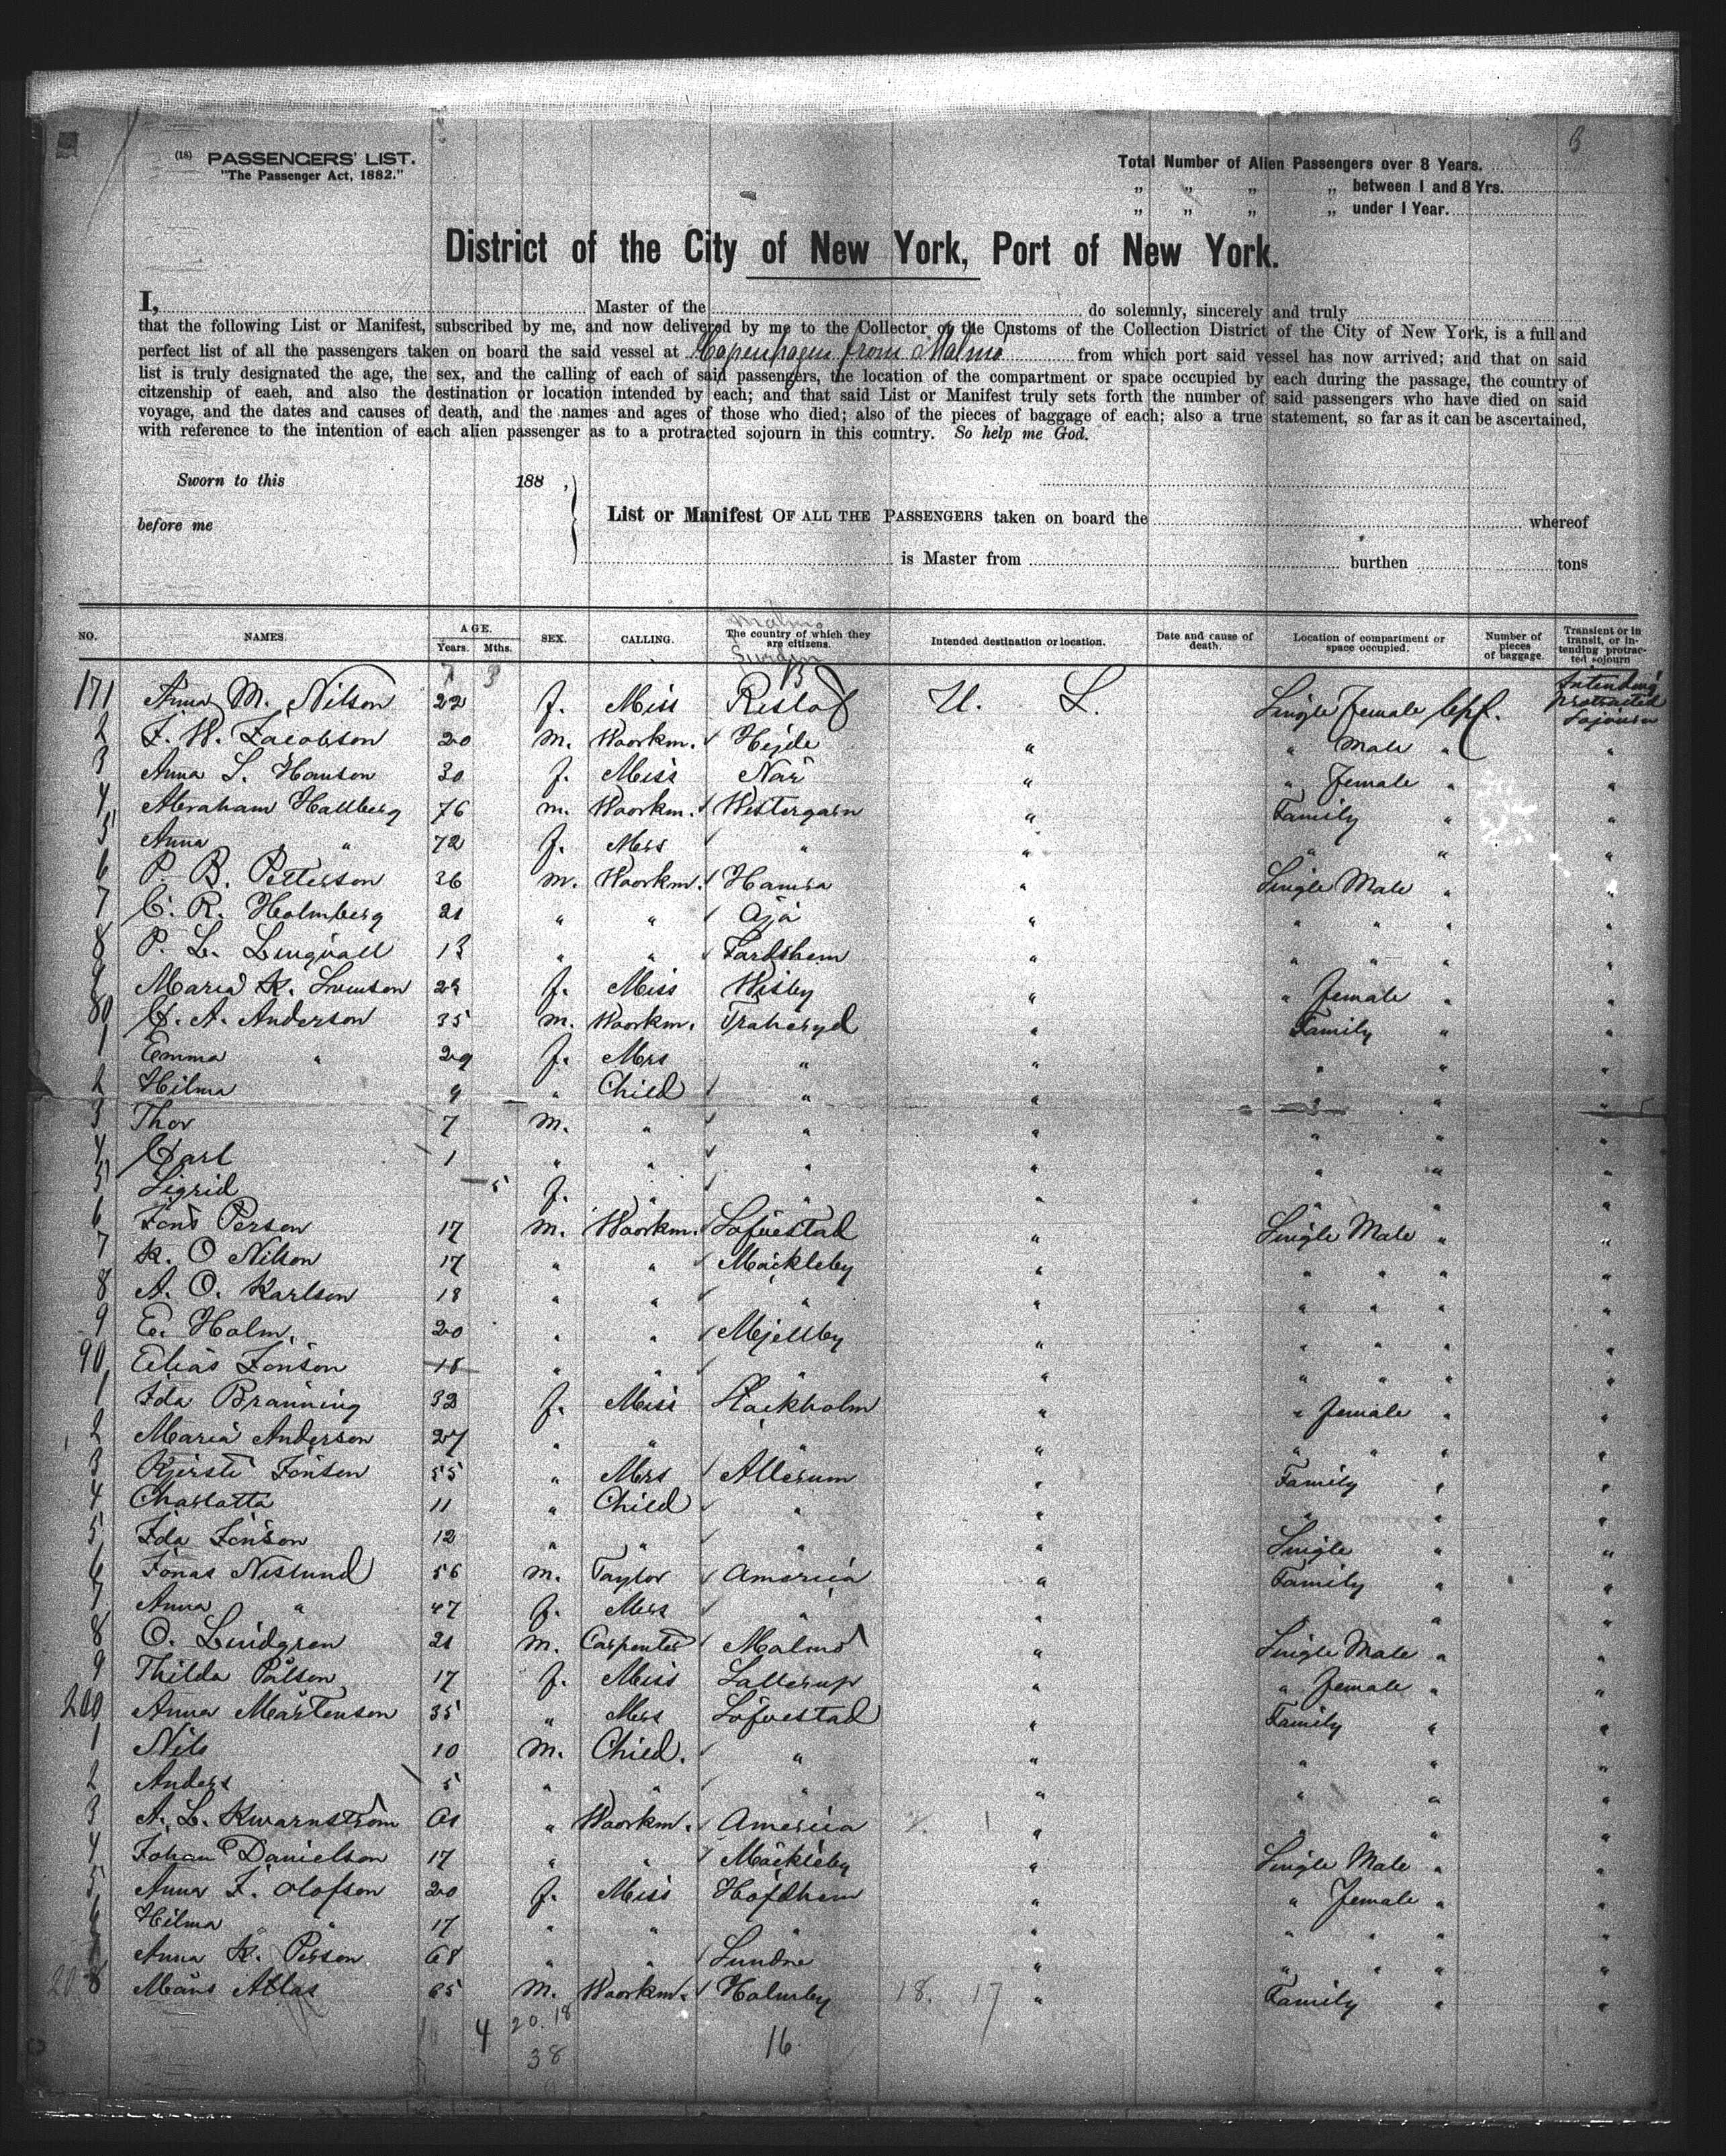 (18) PASSENGERS' LIST.
"The Passenger Act, 1882."
Total Number of Alien Passengers over 8 Years.
„ „ „ „ between 1 and 8 Yrs.
„ „ „ „ under 1 Year.
District of the City of New York, Port of New York.
I, Master of the do solemnly, sincerely and truly
that the following List or Manifest, subscribed by me, and now delivered by me to the Collector of the Customs of the Collection District of the City of New York, is a full and
perfect list of all the passengers taken on board the said vessel at Copenhagen from Malmö from which port said vessel has now arrived; and that on said
list is truly designated the age, the sex, and the calling of each of said passengers, the location of the compartment or space occupied by each during the passage, the country of
citzenship of eaeh, and also the destination or location intended by each; and that said List or Manifest truly sets forth the number of said passengers who have died on said
voyage, and the dates and causes of death, and the names and ages of those who died; also of the pieces of baggage of each; also a true statement, so far as it can be ascertained,
with reference to the intention of each alien passenger as to a protracted sojourn in this country. So help me God.
Sworn to this 188 ,
before me
List or Manifest OF ALL THE PASSENGERS taken on board the whereof
is Master from burthen tons
NO. NAMES. AGE. Years. Mths. SEX. CALLING. The country of which they are citizens. Intended destination or location. Date and cause of death. Location of compartment or space occupied. Number of pieces of baggage. Transient or in transit, or intending protracted sojourn
Malmo
171 Anna M. Nilson 22 f. Miss U. S. Single Female Cpt. Intending Protracted Sojourn
2 J. W. Jacobson 20 m. Woorkm. Hejde " " Male " "
3 Anna L. Hanson 30 f. Miss När " " Female " "
4 Abraham Hallberg 76 m. Woorkm. Westergarn " Family " "
5 Anna " 72 f. Mrs " " " " "
6 P. B. Petterson 36 m. Woorkm. Hamra " Single Male " "
7 C. R. Holmberg 21 " " " " " " "
8 P. L. 13 " " Fardhem " " " " "
9 Maria K. 23 f. Miss Wisby " " Female " "
80 C. A. Anderson 35 m. Woorkm. Traheryd " Family " "
1 Emma " 29 f. Mrs " " " " "
2 Hilma 9 " Child " " " " "
3 Thor 7 m. " " " " " "
4 Carl 1 " " " " " " "
5 Sigrid 5 f. " " " " " "
6 Jöns Person 17 m. Woorkm. Löfvestad " Single Male " "
7 K. O Nilson 17 " " Mäckleby " " " " "
8 A. O. Karlson 18 " " " " " " " "
9 E. Holm. 20 " " Mjellby " " " " "
90 Elias Jönson 18 " " " " " " " "
1 Ida Branning 32 f. Miss Stockholm " " Female " "
2 Maria Anderson 27 " " " " " " " "
3 Kjersti Jönson 55 " Mrs Allerum " Family " "
4 Charlotta 11 " Child " " " " "
5 Ida Jönson 12 " " " " Single " "
6 Jonas 56 m. Taylor America " Family " "
7 Anna " 47 f. Mrs " " " "
8 O. Lindgren 21 m. Carpenter Malmö " Single Male " "
9 Thilda Pålson 17 f. Miss Sallerup " " Female " "
200 Anna Mårtenson 35 " Mrs Löfvestad " Family " "
1 Nils 10 m. Child. " " " " "
2 Anders 5 " " " " " " "
3 A. L. Kwarnström " Woorkm. America " " " "
4 Johan Danielson 17 " " Mäckleby " Single Male " "
5 Anna J. Olofson 20 f. Miss " " Female " "
6 Hilma " " 17 " " " " " " " "
7 Anna K. Person 68 " " " " " " "
208 Måns Atlas 65 m. Woorkm. Holmby 18. 17 " Family " "
4 20. 18
38 16